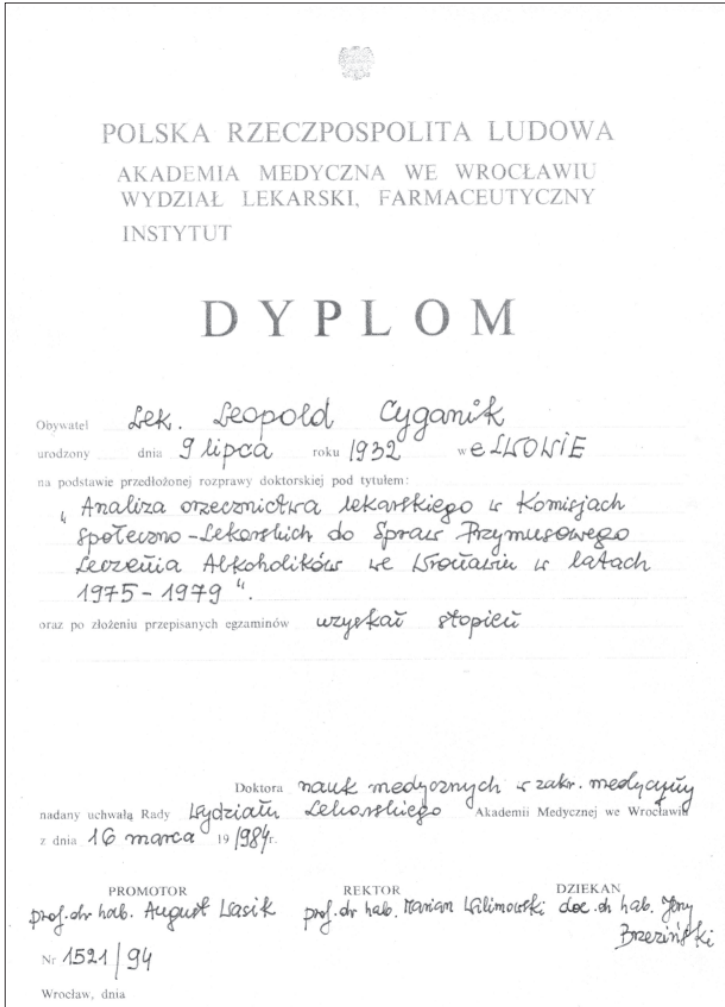 POLSKA RZECZPOSPOLITA LUDOWA
AKADEMIA MEDYCZNA WE WROCŁAWIU
WYDZIAŁ LEKARSKI, FARMACEUTYCZNY
INSTYTUT
DYPLOM
Obywatel Lek. Leopold Cyganik
urodzony dnia 9 lipca roku 1932 we LWOWIE
na podstawie przedłożonej rozprawy doktorskiej pod tytułem:
„Analiza orzecznictwa lekarskiego w Komisjach
Społeczno-Lekarskich do Spraw Przymusowego
Leczenia Alkoholików we Wrocławiu w latach
1975-1979".
oraz po złożeniu przepisanych egzaminów uzyskał stopień
Doktora nauk medycznych w zakr. medycyny
nadany uchwałą Rady Wydziału Lekarskiego Akademii Medycznej we Wrocławiu
z dnia 16 marca 1984r.
PROMOTOR REKTOR DZIEKAN
prof. dr hab. August Wasik prof. dr hab. Marian Wilimowski doc. dr hab. Jerzy
Brzeziński
Nr 1521/94
Wrocław, dnia